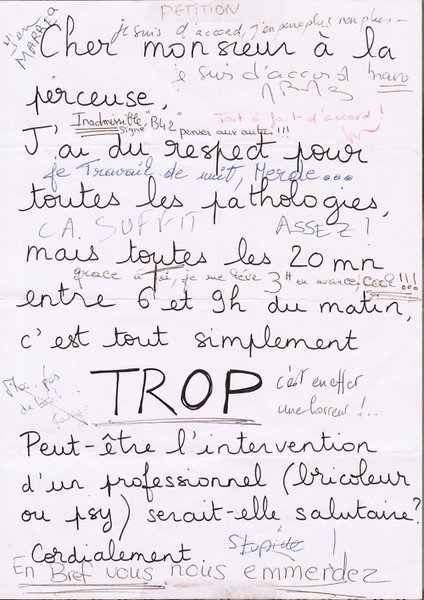 PETITION
je suis d'accord, j'en peux plus non plus
Cher monsieur à la
je suis d'accord
perceuse,
Inadmissible "B42" Tout à fait d'accord !
signé penser aux autres !!!
J'ai du respect pour
je Travail de nuit, Merde...
toutes les pathologies,
CA SUFFIT ASSEZ !
mais toutes les 20 mn
grace à toi, je me lève 3H en avance, cool !!!
entre 6 et 9h du matin,
c'est tout simplement
TROP
c'est en effet
une horreur !..
Peut-être l'intervention
d'un professionnel (bricoleur
ou psy) serait-elle salutaire?
Cordialement
Stupide !
En Bref vous nous emmerdez